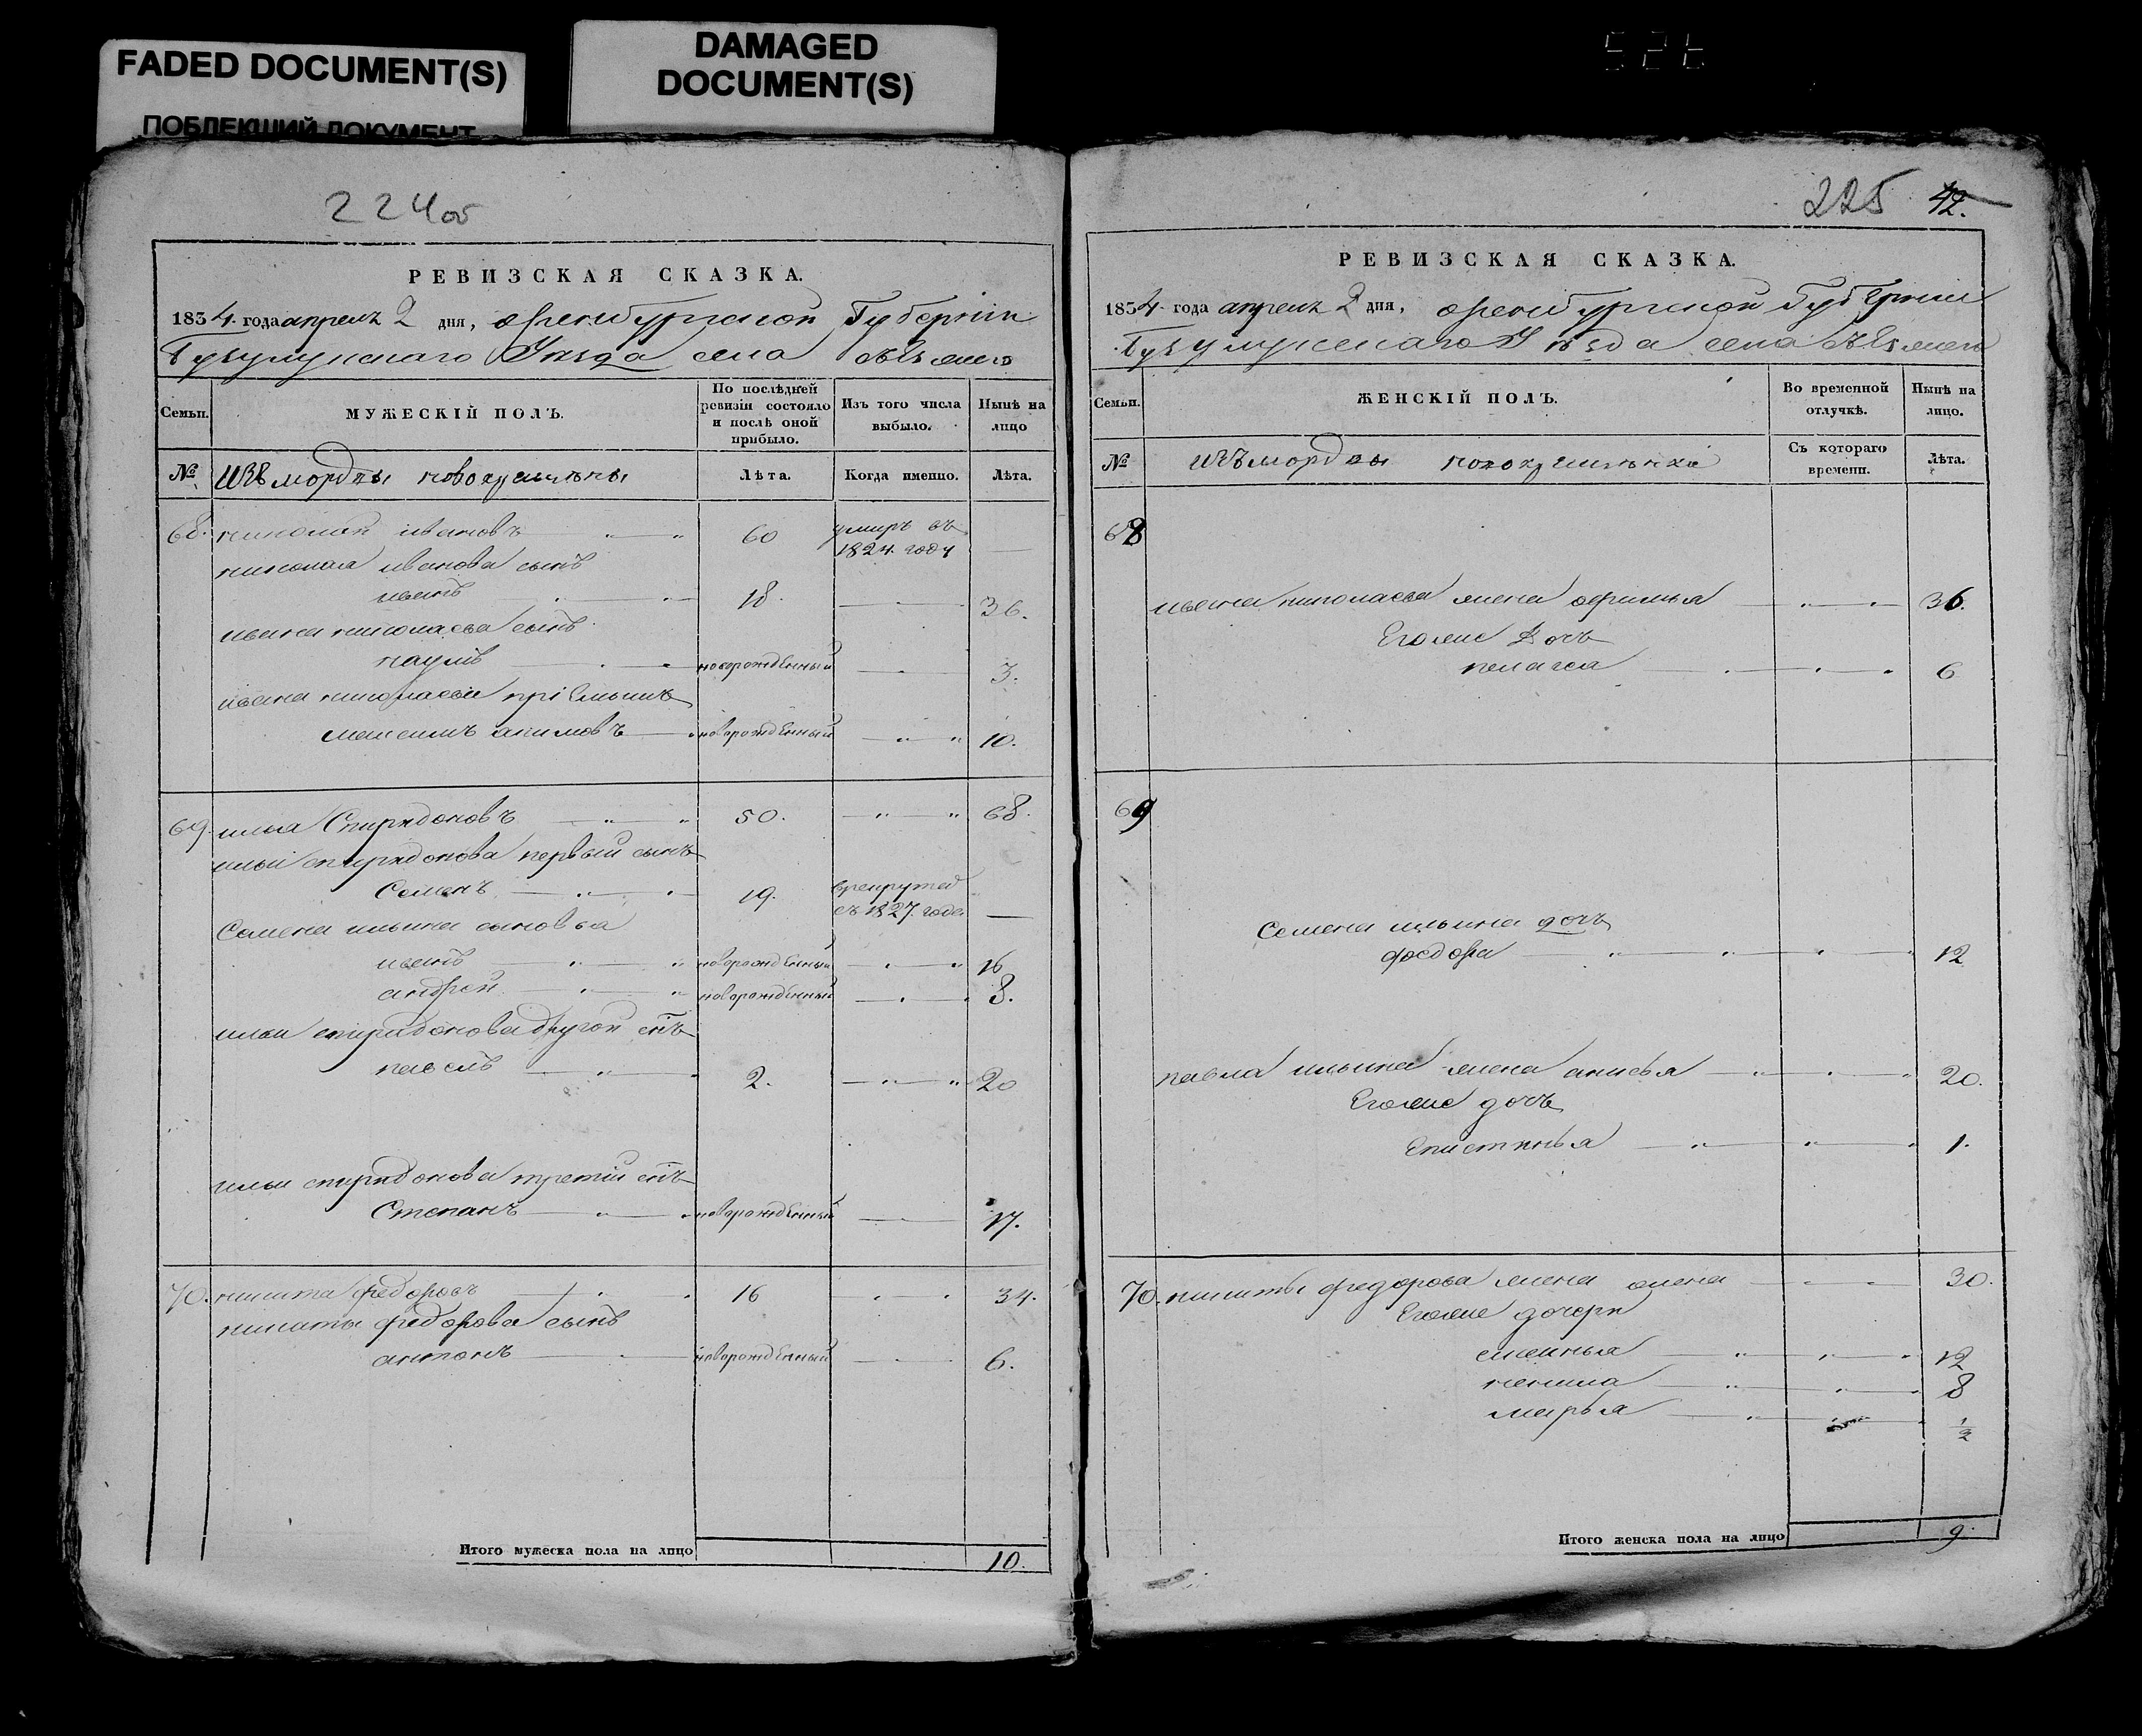 FADED DOCUMENT(S)
ПОБЛЕКШИЙ ДОКУМЕНТ
DAMAGED
DOCUMENT(S)
224об
РЕВИЗСКАЯ СКАЗКА.
1834. года апреля 2 дня, оренбургской Губернии
Бузулукскаго Уѣзда села
Семьи.
МУЖЕСКІЙ ПОЛЪ.
По послѣдней ревизіи состояло и послѣ оной прибыло.
Изъ того числа выбыло.
Нынѣ на лицо
№
изъ мордвы новокрещены
Лѣта.
Когда именно.
Лѣта.
68. николай ивановъ 60 умиръ въ 1824. году —
николая иванова сынъ
иванъ 18. 36.
ивана николаева сынъ
наумъ новорожденный 3.
ивана николаева пріемышъ
максимъ акимовъ новорожденный 10.
69. илья Спиридоновъ 50. 68.
ильи спиридонова первый сынъ
Семенъ 19. врекруты съ 1827. года —
Семена ильина сыновья
иванъ новорожденный 16
андрей новорожденный 8.
ильи спиридонова другой снъ
павелъ 2. 20
ильи спиридонова третій снъ
Степанъ новорожденный 17.
70. никита федоровъ 16 34.
никиты федорова сынъ
антонъ новорожденный 6.
Итого мужеска пола на лицо 10.
225 42.
РЕВИЗСКАЯ СКАЗКА.
1834 года апреля 2 дня, оренбургской Губернии
Бузулукскаго Уѣзда села
Семьи.
ЖЕНСКІЙ ПОЛЪ.
Во временной отлучкѣ.
Нынѣ на лицо.
№
изъ мордвы
Съ котораго времени.
Лѣта.
68
ивана николаева жена афимья 36.
Егоже дочь
пелагея 6
69
Семена ильина дочь
федора 12
павла ильина жена анисья 20.
Егоже дочь
Епистинья 1.
70. никиты федорова жена елена 30.
Егоже дочери
12
8
марья 1/2
Итого женска пола на лицо 9.